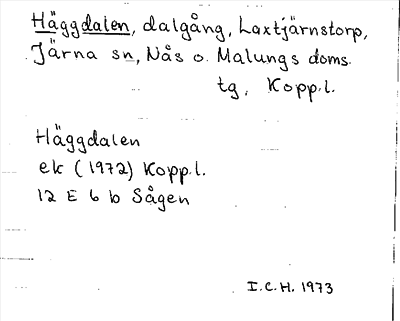 Häggdalen, dalgång, Laxtjärnstorp,
Järna sn, Nås o. Malungs doms.
tg, Kopp.l.
Häggdalen
ek (1972) Kopp.l.
12 E 6 b Sågen
I.C.H. 1973